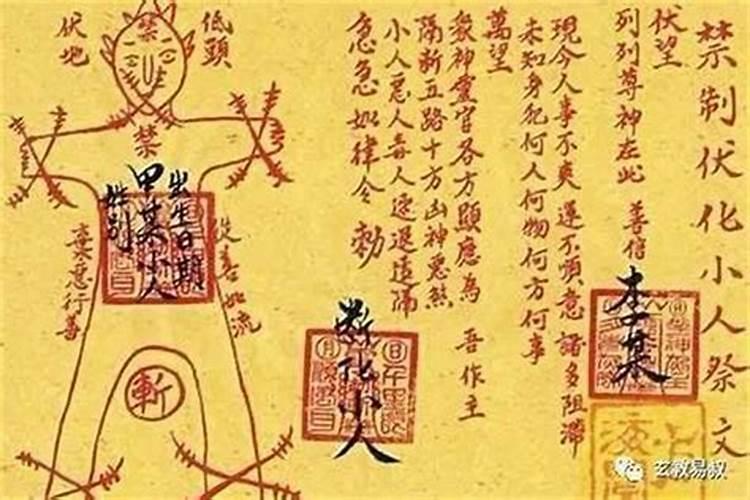 禁制伏化小人祭文
伏望
列列尊神在此 善信
李某
現今人事不爽 運不順意 諸多阻滯
未知身犯何人何物何方何事
萬望
眾神靈官各方顯應為 吾作主
隔斬五路十方凶神惡煞
小人惡人毒人速退遠隔
急急如律令 勅
斬化小人
低頭
伏地
禁
禁
出生日期
甲某小人
姓别
從善如流
棄惡行善
斬
玄教易叔